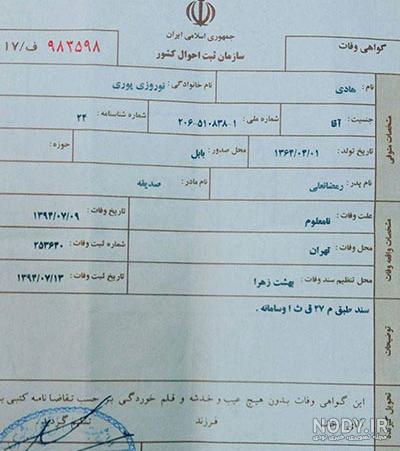 جمهوری اسلامی ایران
سازمان ثبت احوال کشور
گواهی وفات
۹۸۳۵۹۸ ف/۱۷
مشخصات متوفی
نام : هادی نام خانوادگی : نوروزی پوری
جنسیت : آقا شماره ملی : ۲۰۶-۵۱۰۸۳۸-۱ شماره شناسنامه : ۲۴
تاریخ تولد : ۱۳۶۴/۰۴/۰۱ محل صدور : بابل حوزه :
نام پدر : رمضانعلی نام مادر : صدیقه
مشخصات واقعه وفات
علت وفات : نامعلوم تاریخ وفات : ۱۳۹۴/۰۷/۰۹
محل وفات : تهران شماره ثبت وفات : ۲۵۳۶۴۰
محل تنظیم سند وفات : بهشت زهرا تاریخ ثبت وفات : ۱۳۹۴/۰۷/۱۳
توضیحات
سند طبق م ۲۷ ق ث ا وسامانه .
تحویل
این گواهی وفات بدون هیچ عیب و خدشه و قلم خوردگی بر حسب تقاضا نامه کتبی
فرزند تسلیم گردید
NODY.IR